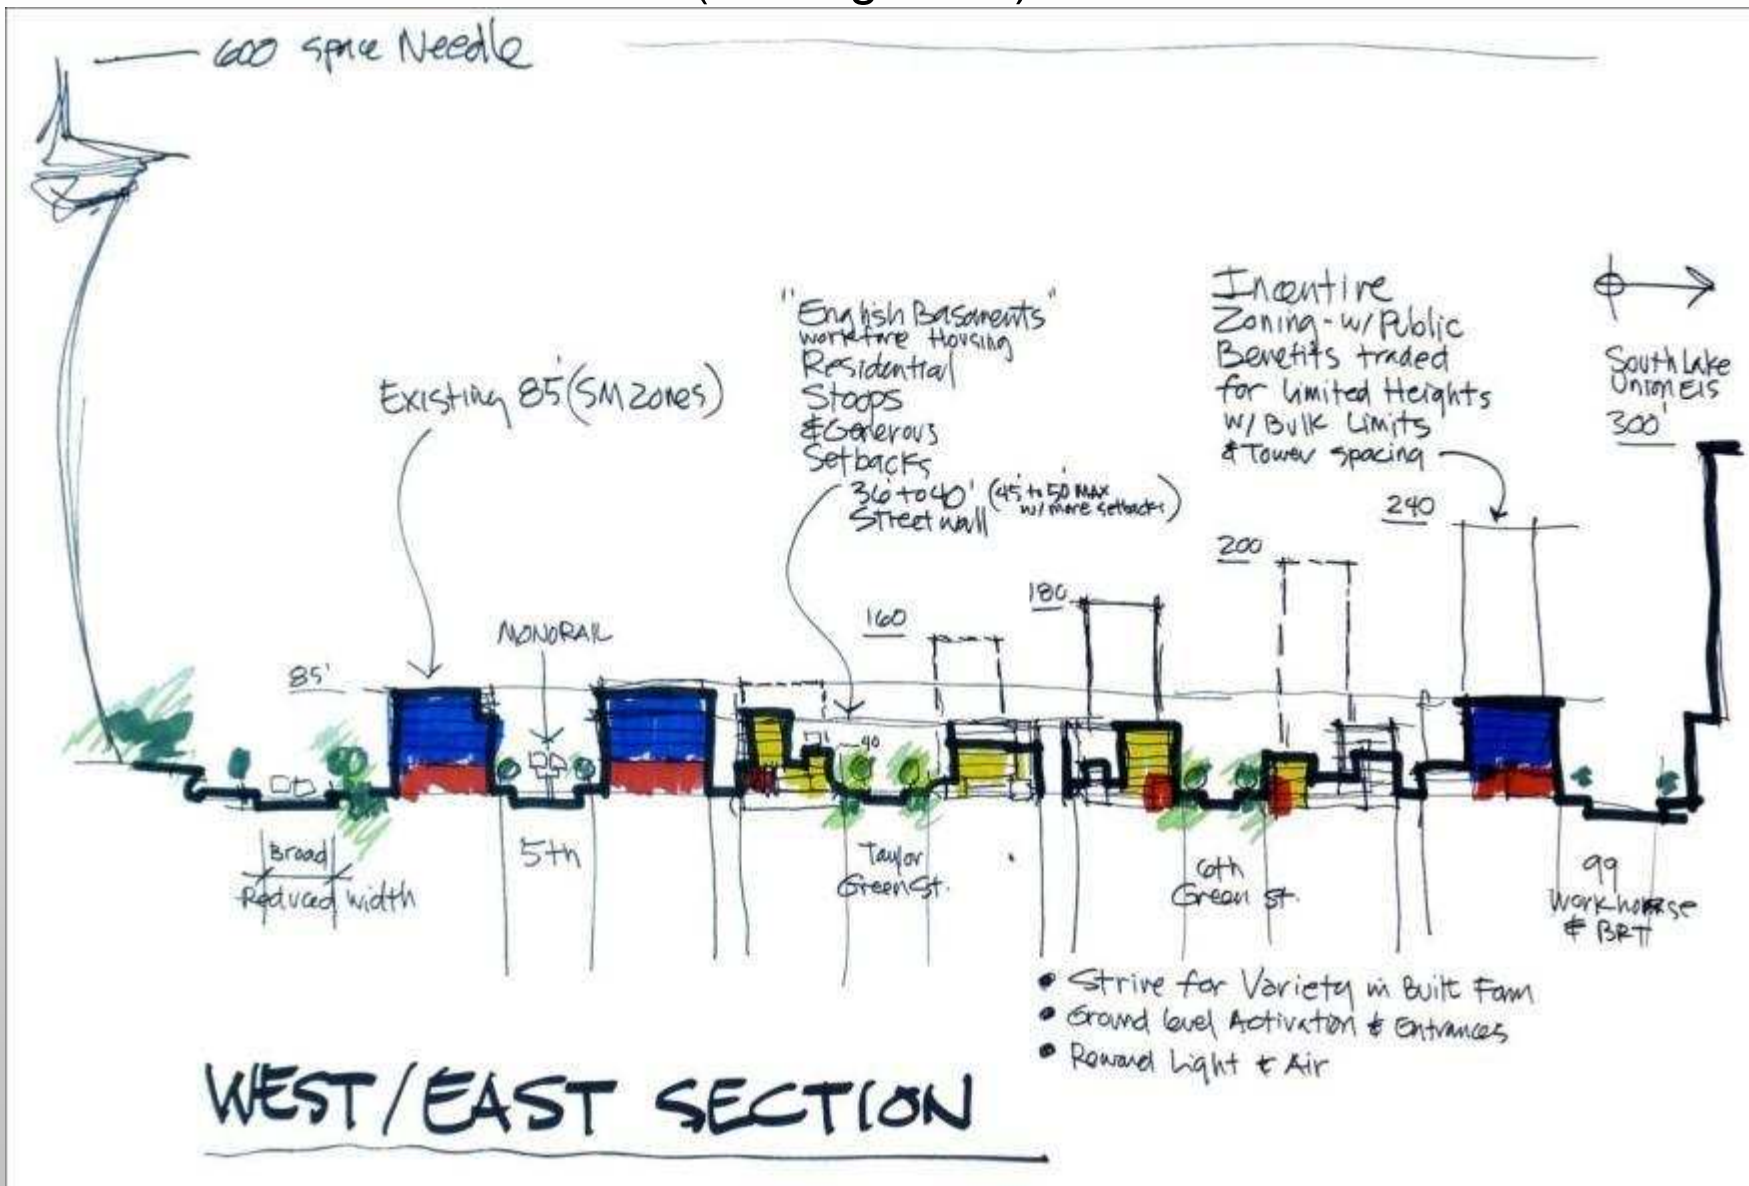 600 Space Needle
"English Basements"
workforce Housing
Residential
Stoops
& Generous
Setbacks
36' to 40' (45' to 50' MAX
Street wall w/ more setbacks)
Incentive
Zoning - w/ Public
Benefits traded
for Limited Heights
w/ Bulk Limits
& Tower spacing
South Lake
Union EIS
300'
Existing 85' (SM Zones)
240
200
180
160
MONORAIL
85'
40
Broad
Reduced width
5th
Taylor
Green St.
6th
Green St.
99
Workhorse
& BRT
• Strive for Variety in Built Form
• Ground level Activation & Entrances
• Reward Light & Air
WEST/EAST SECTION